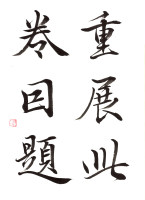 重展此
卷因題